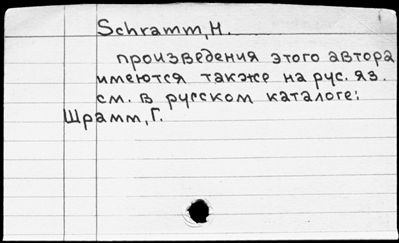 Schramm, H.
произведения этого автора
имеются также на рус. яз.
см. в русском каталоге:
Шрамм, Г.